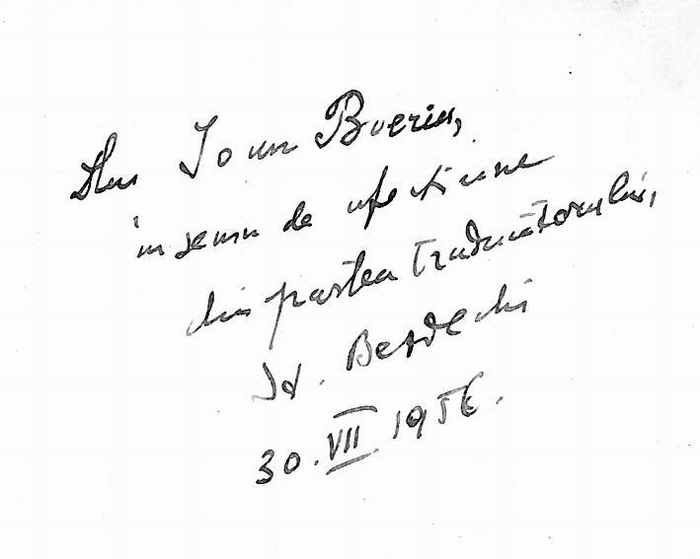 Dlui Ioan Boeriu,
în semn de afecțiune
din partea traducătorului,
Șt. Bezdechi
30.VII.1956.